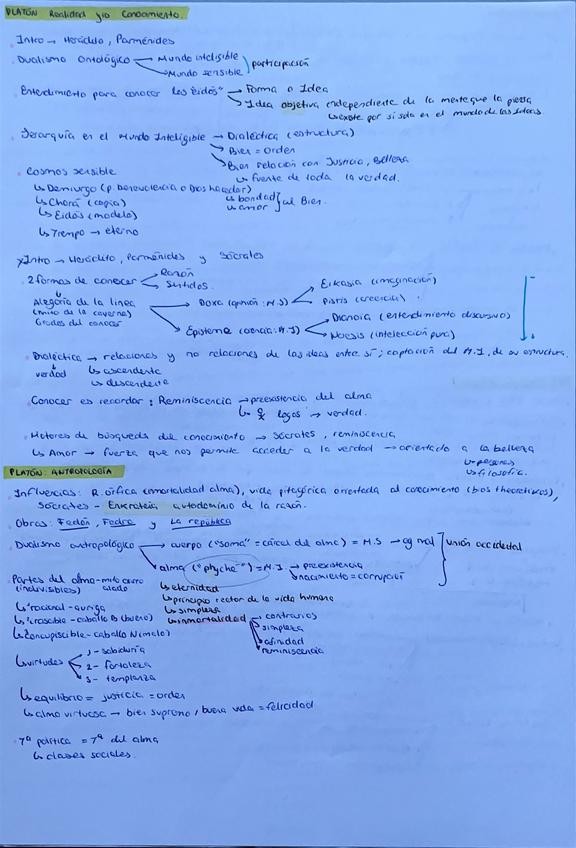 PLATÓN Realidad y/o Conocimiento.
Intro → Heráclito, Parménides
Dualismo Ontológico → Mundo inteligible
→ Mundo sensible
participación
Entendimiento para conocer los "eidós" → Forma o Idea
→ Idea objetiva independiente de la mente que la piensa
↳ existe por sí sola en el mundo de las Ideas
Jerarquía en el Mundo Inteligible → Dialéctica (estructura)
→ Bien = Orden
→ Bien relación con Justicia, Belleza
↳ fuente de toda la verdad.
Cosmos sensible
↳ Demiurgo (p. Benevolencia o Dios hacedor)
↳ bondad
↳ amor } al Bien.
↳ Chorá (copia)
↳ Eidós (modelo)
↳ Tiempo → eterno
Intro → Heráclito, Parménides y Sócrates
2 formas de conocer → Razón
→ Sentidos.
Alegoría de la línea
(mito de la caverna)
Grados del conocer
→ Doxa (opinión: M.S) → Eikasia (imaginación)
→ Pistis (creencia)
→ Episteme (ciencia: M.I) → Dianoia (entendimiento discursivo)
→ Noesis (intelección pura)
Dialéctica → relaciones y no relaciones de las ideas entre sí; captación del M.I, de su estructura.
verdad ↳ ascendente
↳ descendente
Conocer es recordar: Reminiscencia → preexistencia del alma
↳ logos → verdad.
Motores de búsqueda del conocimiento → Sócrates, reminiscencia
↳ Amor → fuerza que nos permite acceder a la verdad → orientado a la belleza
↳ personas
↳ filosofía.
PLATÓN: ANTROPOLOGÍA
Influencias: R. órfica (inmortalidad alma), vida pitagórica orientada al conocimiento (bios theoretikos),
Sócrates - Enkrateia autodominio de la razón.
Obras: Fedón, Fedro y La república
Dualismo antropológico → cuerpo ("soma" = cárcel del alma) = M.S
→ alma ("phyche") = M.I → preexistencia
→ nacimiento = corrupción
} unión accidental
Partes del alma - mito carro
(indivisibles) alado
↳ racional - auriga
↳ irascible - caballo B (bueno)
↳ concupiscible - caballo N (malo)
↳ eternidad
↳ principio rector de la vida humana
↳ simpleza
↳ inmortalidad → contrarios
simpleza
afinidad
reminiscencia
↳ virtudes
1 - sabiduría
2 - fortaleza
3 - templanza
↳ equilibrio = justicia = orden
↳ alma virtuosa → bien supremo / buena vida = felicidad
7ª política = 7ª del alma
↳ clases sociales.